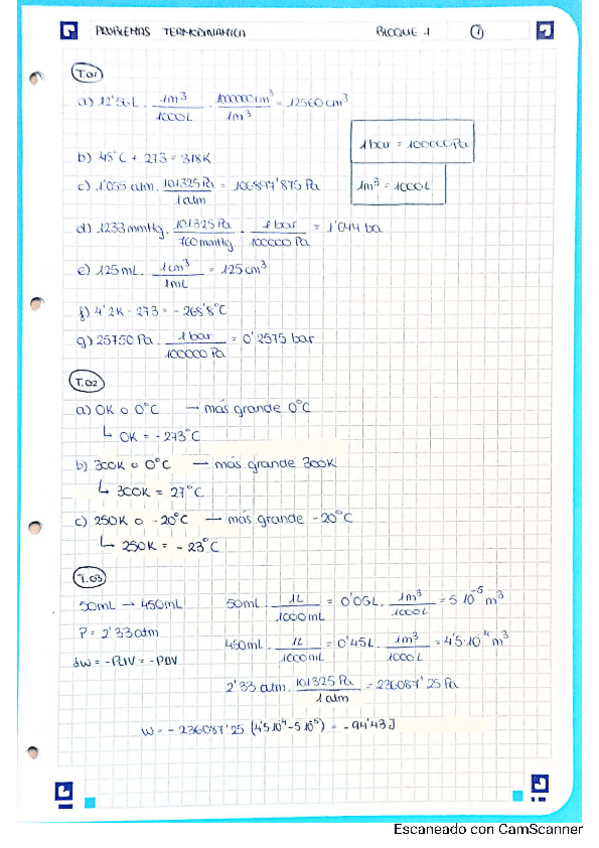 PROBLEMAS TERMODINAMICA BLOQUE 1 1
T.01
a) 12'56L · 1m³/1000L · 1000000cm³/1m³ = 12560cm³
1 bar = 100000Pa
b) 45°C + 273 = 318K
c) 1'055 atm · 101325Pa/1atm = 106897'875 Pa
1m³ = 1000L
d) 1233mmHg · 101325 Pa/760mmHg · 1 bar/100000 Pa = 1'644 ba
e) 125mL · 1cm³/1mL = 125cm³
f) 4'2K - 273 = - 268'8°C
g) 25750Pa · 1 bar/100000 Pa = 0'2575 bar
T.02
a) 0K o 0°C → más grande 0°C
↳ 0K = -273°C
b) 300K o 0°C → más grande 300K
↳ 300K = 27°C
c) 250K o -20°C → más grande -20°C
↳ 250K = -23°C
T.03
50mL → 450mL 50mL · 1L/1000mL = 0'05L · 1m³/1000L = 5·10⁻⁵ m³
P = 2'33atm
450mL · 1L/1000mL = 0'45L · 1m³/1000L = 4'5·10⁻⁴ m³
dW = -PdV = -PΔV
2'33 atm · 101325 Pa/1 atm = 236087'25 Pa
W = - 236087'25 (4'5·10⁻⁴ - 5·10⁻⁵) = - 94'43 J
Escaneado con CamScanner